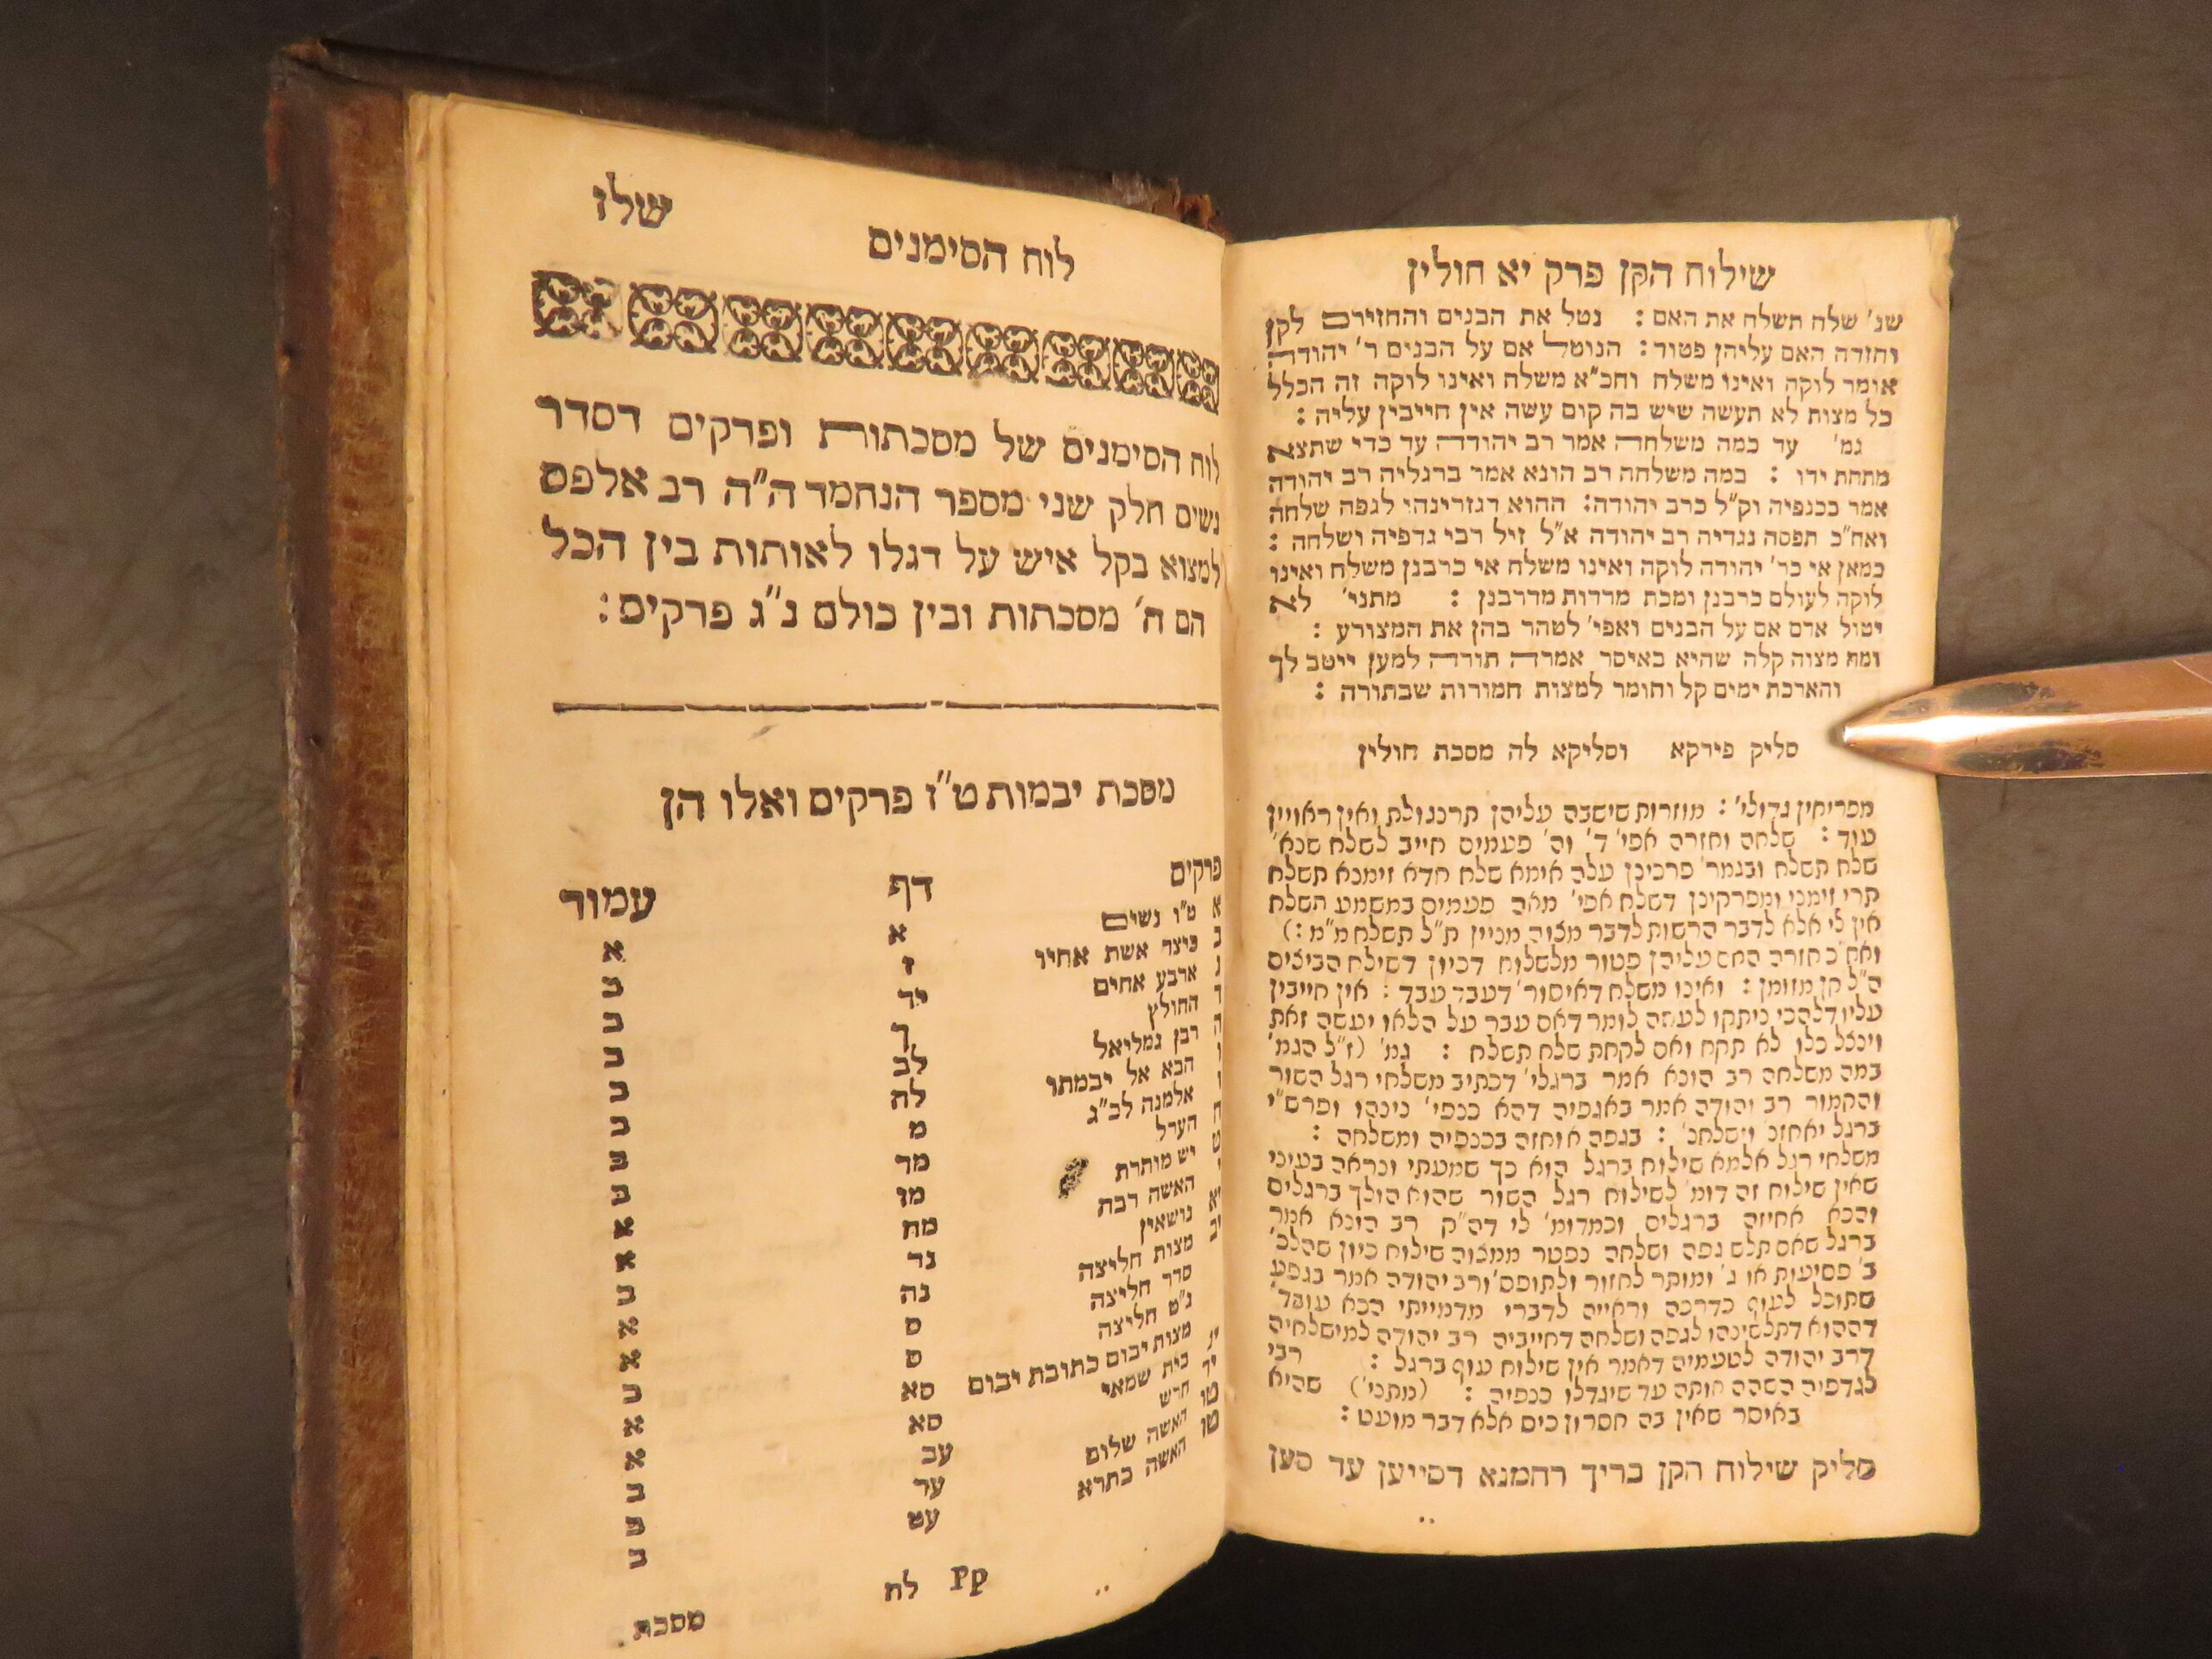 שילוח הקן פרק יא חולין
שנ' שלח תשלח את האם : נטל את הבנים והחזירם לקן
וחזרה האם עליהן פטור : הנוטל אם על הבנים ר' יהודה
אומר לוקה ואינו משלח וחכ"א משלח ואינו לוקה זה הכלל
כל מצות לא תעשה שיש בה קום עשה אין חייבין עליה :
גמ' עד כמה משלחה אמר רב יהודה עד כדי שתצא
מתחת ידו : במה משלחה רב הונא אמר ברגליה רב יהודה
אמר בכנפיה וק"ל כרב יהודה : ההוא דגזרינהו לגפה שלחה
ואח"כ תפסה נגדיה רב יהודה א"ל זיל רבי גדפיה ושלחה :
כמאן אי כר' יהודה לוקה ואינו משלח אי כרבנן משלח ואינו
לוקה לעולם כרבנן ומכת מרדות מדרבנן : מתני' לא
יטול אדם אם על הבנים ואפי' לטהר בהן את המצורע :
ומה מצוה קלה שהיא כאיסר אמרה תורה למען ייטב לך
והארכת ימים קל וחומר למצות חמורות שבתורה :
סליק פירקא וסליקא לה מסכת חולין
מפריחין גדולי' : מוזרות שישבה עליהן תרנגולת ואין ראויין
עוד : שלחה וחזרה אפי' ד' וה' פעמים חייב לשלח שנא'
שלח תשלח ובגמר' פרכינן עלה אימא שלח חדא זימנא תשלח
תרי זימני ומפרקינן דשלח אפי' מאה פעמים במשמע תשלח
אין לי אלא לדבר הרשות לדבר מצוה מניין ת"ל תשלח מ"מ :)
ואח"כ חזרה האם עליהן פטור מלשלוח דכיון דשילח הביצים
ה"ל קן מזומן : ואינו משלח דאיסור' דעבד עבד : אין חייבין
עליו דלהכי ניתקו לעשה לומר דאם עבר על הלאו יעשה זאת
וינצל כלו' לא תקח ואם לקחת שלח תשלח : גמ' (ז"ל הגמ'
במה משלחה רב הונא אמר ברגלי' דכתיב משלחי רגל השור
והחמור רב יהודה אמר באגפיה דהא כנפי' נינהו ופרש"י
ברגל יאחזנ' וישלחנ' : בגפה אוחזה בכנפיה ומשלחה :
משלחי רגל אלמא שילוח ברגל הוא כך שמעתי ונראה בעיני
שאין שילוח זה דומ' לשילוח רגל השור שהוא הולך ברגלים
והכא אחיזה ברגלים וכמדומ' לי דה"ק רב הונא אמר
ברגל שאם תלש גפה ושלחה נפטר ממצות שילוח כיון שהלכ'
ב' פסיעות או ג' ומותר לחזור ולתופס' ורב יהודה אמר בגפה
שתוכל לעוף כדרכה וראייה לדברי מדמייתי הכא עובד'
דההוא דתלשינהו לגפה ושלחה דחייביה רב יהודה למישלחיה
דרב יהודה לטעמיה דאמר אין שילוח עוף ברגל : רבי
לגדפיה השהה אותה עד שיגדלו כנפיה : (מתני') שהיא
כאיסר שאין בה חסרון כיס אלא דבר מועט :
סליק שילוח הקן בריך רחמנא דסייען עד כען
לוח הסימנים שלז
לוח הסימנים של מסכתות ופרקים דסדר
נשים חלק שני מספר הנחמד ה"ה רב אלפס
למצוא בקל איש על דגלו לאותות בין הכל
הם ה' מסכתות ובין כולם נ"ג פרקים :
מסכת יבמות ט"ז פרקים ואלו הן
פרקים דף עמוד
א ט"ו נשים א א
ב כיצד אשת אחיו ז ב
ג ארבע אחים יד ב
ד החולץ ך ב
ה רבן גמליאל לב ב
ו הבא אל יבמתו לח ב
ז אלמנה לכ"ג מ ב
ח הערל מד ב
ט יש מותרת מז א
י האשה רבת מח א
יא נושאין נד ב
יב מצות חליצה נה א
סדר חליצה ס א
ג"ט חליצה ס ב
מצות יבום כתובת יבום סא א
יג בית שמאי סא א
יד חרש עב ב
טו האשה שלום עד ב
טז האשה בתרא עט ב
Pp לח
מסכת